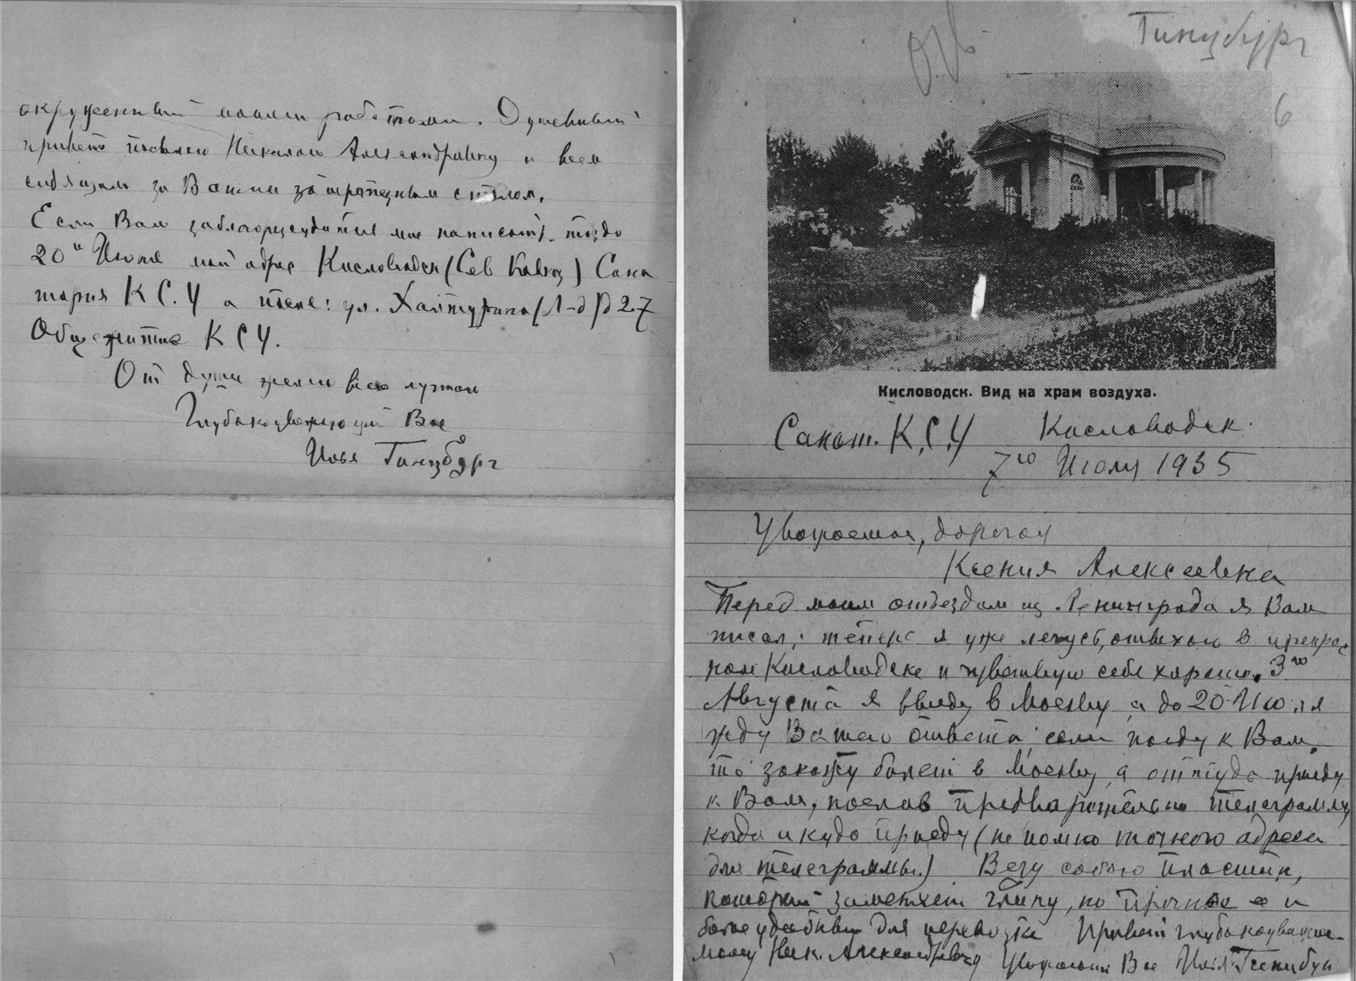 окруженный моими работами. Душевный
привет посылаю Николаю Александровичу и всем
сидящим за Вашим столом.
Если Вам заблагорассудится мне написать, то до
20го Июля мой адрес Кисловодск (Сев Кавказ) Сана
тория К С. У а после: ул. Халтурина (Л-д) 27
Общежитие К С У.
От души желаю всего лучшего
Глубокоуважающий Вас
Илья Гинцбург
Гинцбург
6
Кисловодск. Вид на храм воздуха.
Санат. К. С. У Кисловодск.
7го Июля 1935
Уважаемая, дорогая
Ксения Алексеевна
Перед моим отъездом из Ленинграда я Вам
писал; теперь я уже лечусь, отдыхаю в прекрас
ном Кисловодске и чувствую себя хорошо. 3го
Августа я выеду в Москву, а до 20 Июля
жду Вашего ответа; если поеду к Вам,
то закажу билет в Москву, а оттуда приеду
к Вам, послав предварительно телеграмму,
когда и куда приеду (не помню точного адреса
для телеграммы.) Везу с собою пластилин,
который заменяет глину, но прочнее и
более удобный для перевозки Привет глубокоуважае-
мому Ник. Александровичу Уважающий Вас Илья Гинцбург